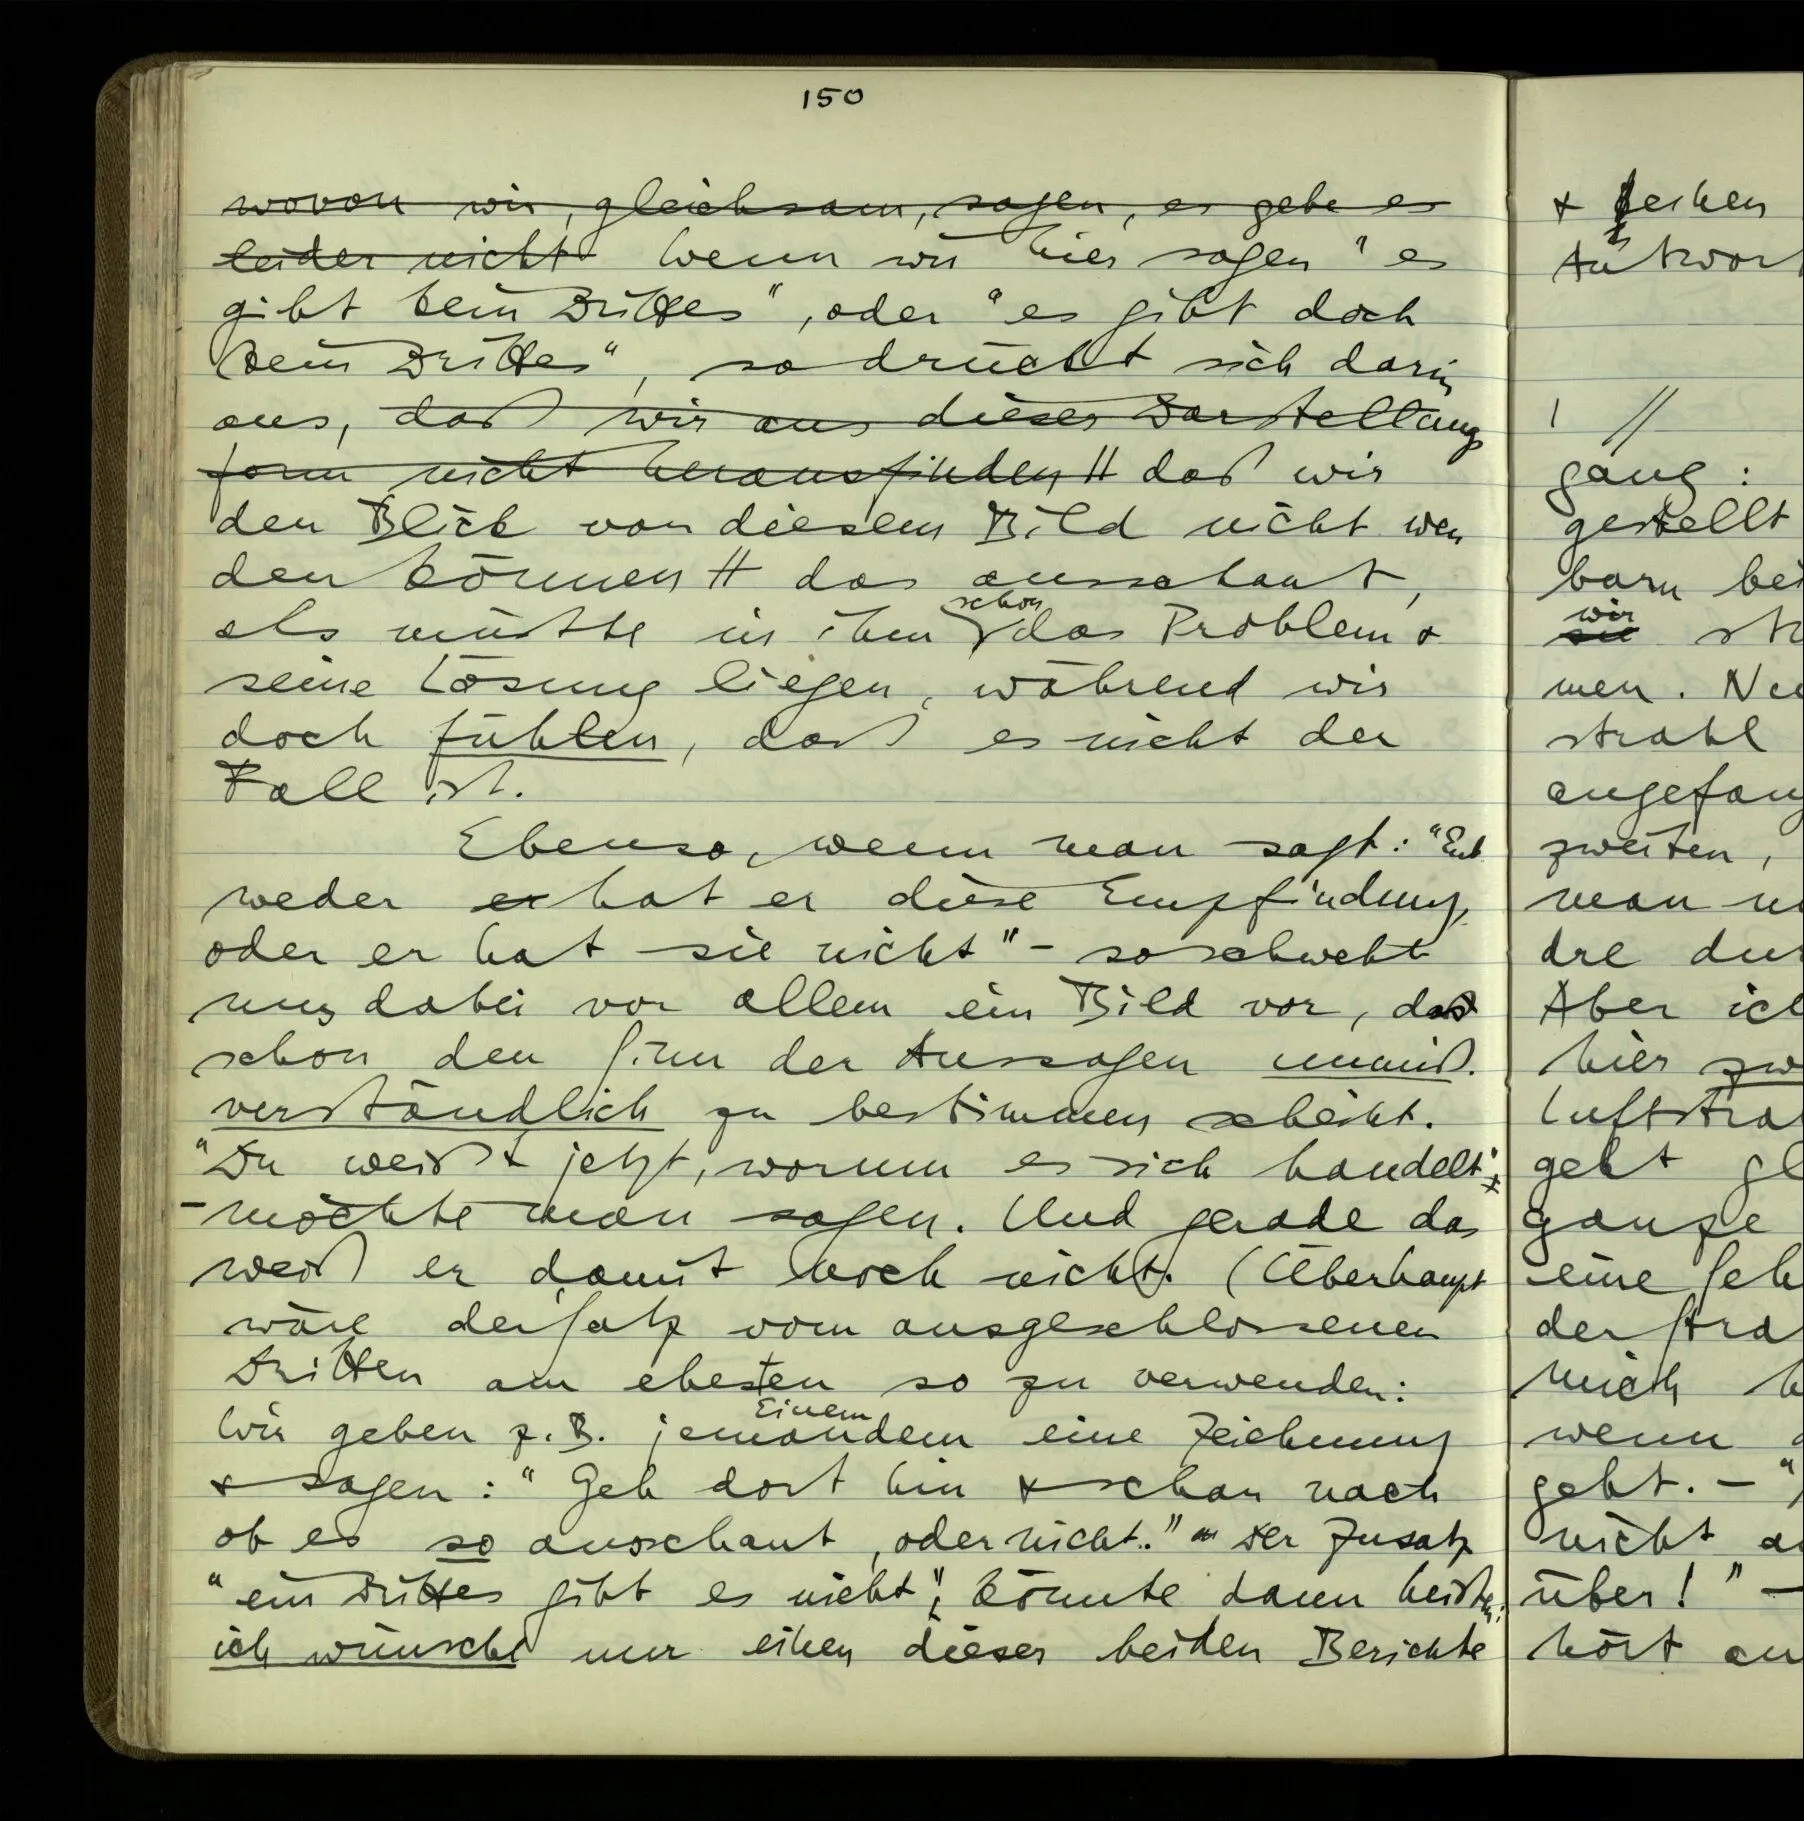 150
wovon wir, gleichsam, sagen, es gebe es
leider nicht Wenn wir hier sagen "es
gibt kein Drittes", oder "es gibt doch
kein Drittes", so drückt sich darin
aus, daß wir aus dieser Darstellung
form nicht herausfinden || daß wir
den Blick von diesem Bild nicht wen
den können || das ausschaut,
als müßte in ihm schon das Problem &
seine Lösung liegen, während wir
doch fühlen, daß es nicht der
Fall ist.
Ebenso, wenn man sagt: "Ent
weder er hat er diese Empfindung,
oder er hat sie nicht" – so schwebt
uns dabei vor allem ein Bild vor, das
schon den Sinn der Aussagen unmiß.
verständlich zu bestimmen scheint.
"Du weißt jetzt, worum es sich handelt"
– möchte man sagen. Und gerade das
weiß er damit noch nicht. (Überhaupt
wäre der Satz vom ausgeschlossenen
Dritten am ehesten so zu verwenden:
Einem
Wir geben z.B. jemandem eine Zeichnung
& sagen: "Geh dort hin & schau nach
ob es so ausschaut, oder nicht." – Der Zusatz
"ein Drittes gibt es nicht", könnte dann heißen:
ich wünsche nur einen dieser beiden Berichte
&
Antwort
1 //
gang:
gestellt
barn bei
wir
sie
men.
strahl
angefang
zweiten,
man
dre
Aber ich
hier zw
Luftstra
geht gl
ganze
eine Seh
der Stra
mich
wenn
geht. – "
nicht
über!" –
hört